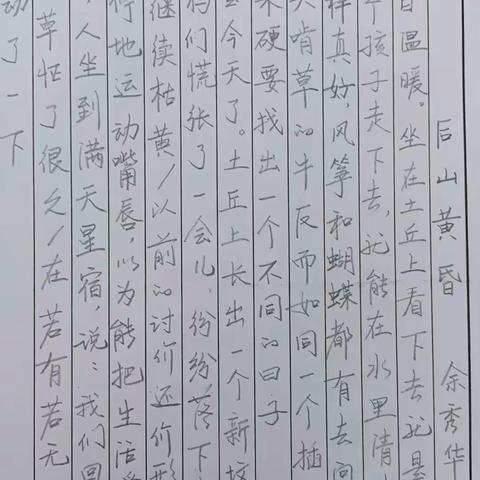 后山黄昏 余秀华
日温暖。坐在土丘上看下去就是
个孩子走下去,就能在水里清
样真好,风筝和蝴蝶都有去向
头啃草的牛反而如同一个插
果硬要找出一个不同的日子
今天了。土丘上长出一个新坟
们慌张了一会儿,纷纷落下
继续枯黄/以前的讨价还价形
停地运动嘴唇,以为能把生活
人坐到满天星宿,说:我们回
草忙了很久/在若有若无
动了一下